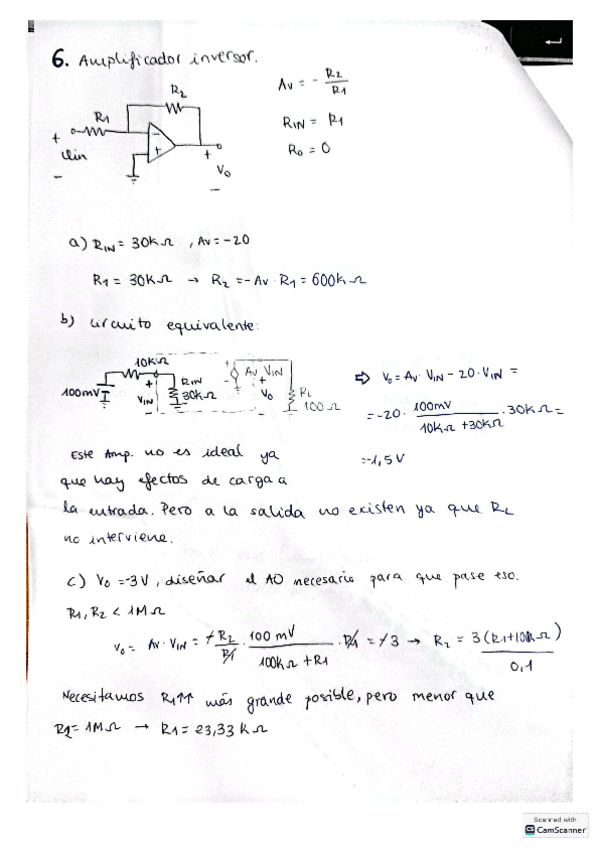 6. Amplificador inversor.
Av = - R2/R1
RIN = R1
R0 = 0
R2
R1
+
Uin
-
-
+
+
Vo
-
a) RIN = 30KΩ , Av = -20
R1 = 30KΩ → R2 = -Av · R1 = 600KΩ
b) circuito equivalente:
10KΩ
100mV
+
VIN
-
RIN
30KΩ
+
Av VIN
+
Vo
-
RL
100Ω
⇒ Vo = Av · VIN - 20 · VIN =
= -20 · 100mV/(10KΩ + 30KΩ) · 30KΩ =
= -1,5V
Este Amp. no es ideal ya
que hay efectos de carga a
la entrada. Pero a la salida no existen ya que RL
no interviene.
c) Vo = -3V, diseñar el AO necesario para que pase eso.
R1, R2 < 1MΩ
Vo = Av · VIN = -R2/R1 · 100 mV/(100KΩ + R1) · R1 = -3 → R2 = 3(R1+10KΩ)/0,1
Necesitamos R1↑↑ más grande posible, pero menor que
R2 = 1MΩ → R1 = 23,33 KΩ
Scanned with
CamScanner